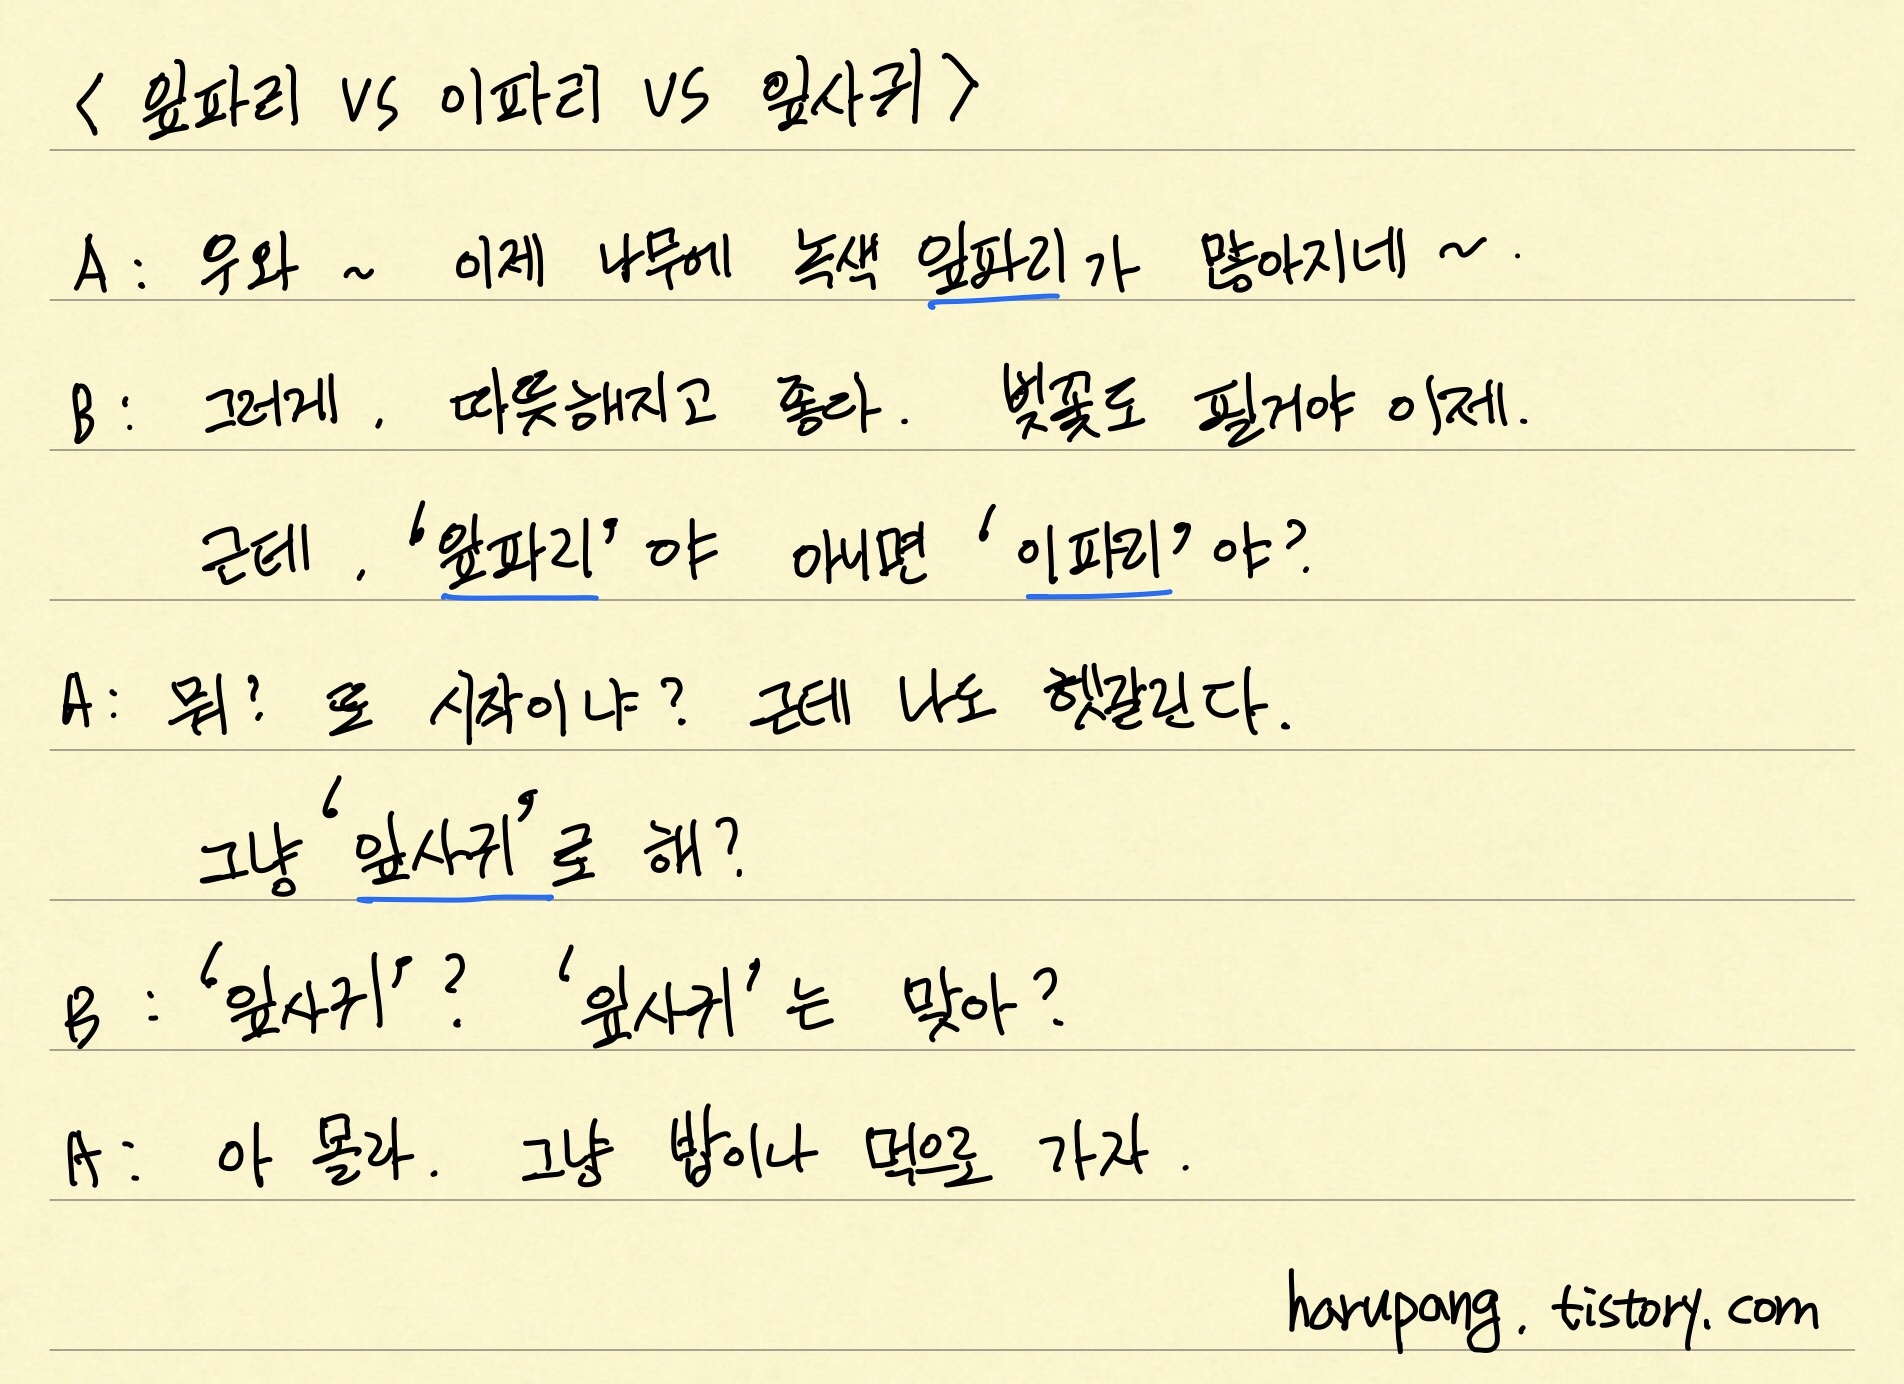 < 잎파리 VS 이파리 VS 잎사귀 >
A : 우와 ~ 이제 나무에 녹색 잎파리가 많아지네 ~ .
B : 그러게 , 따뜻해지고 좋다 . 벚꽃도 필거야 이제 .
근데 , ‘잎파리’ 야 아니면 ‘이파리’ 야?
A : 뭐? 또 시작이냐? 근데 나도 헷갈린다 .
그냥 ‘잎사귀’로 해?
B : ‘잎사귀’ ? ‘잎사귀’는 맞아?
A : 아 몰라 . 그냥 밥이나 먹으로 가자 .
harupang . tistory . com